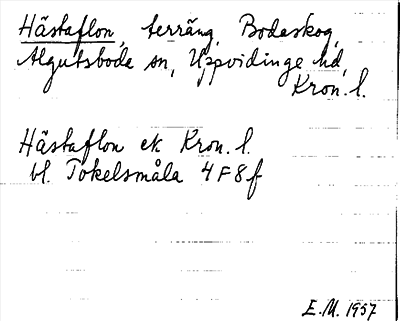 Hästaflon, terräng, Bodaskog,
Algutsboda sn, Uppvidinge hd,
Kron. l.
Hästaflon ek Kron. l.
bl. Tokelsmåla 4F8f
E.M. 1957